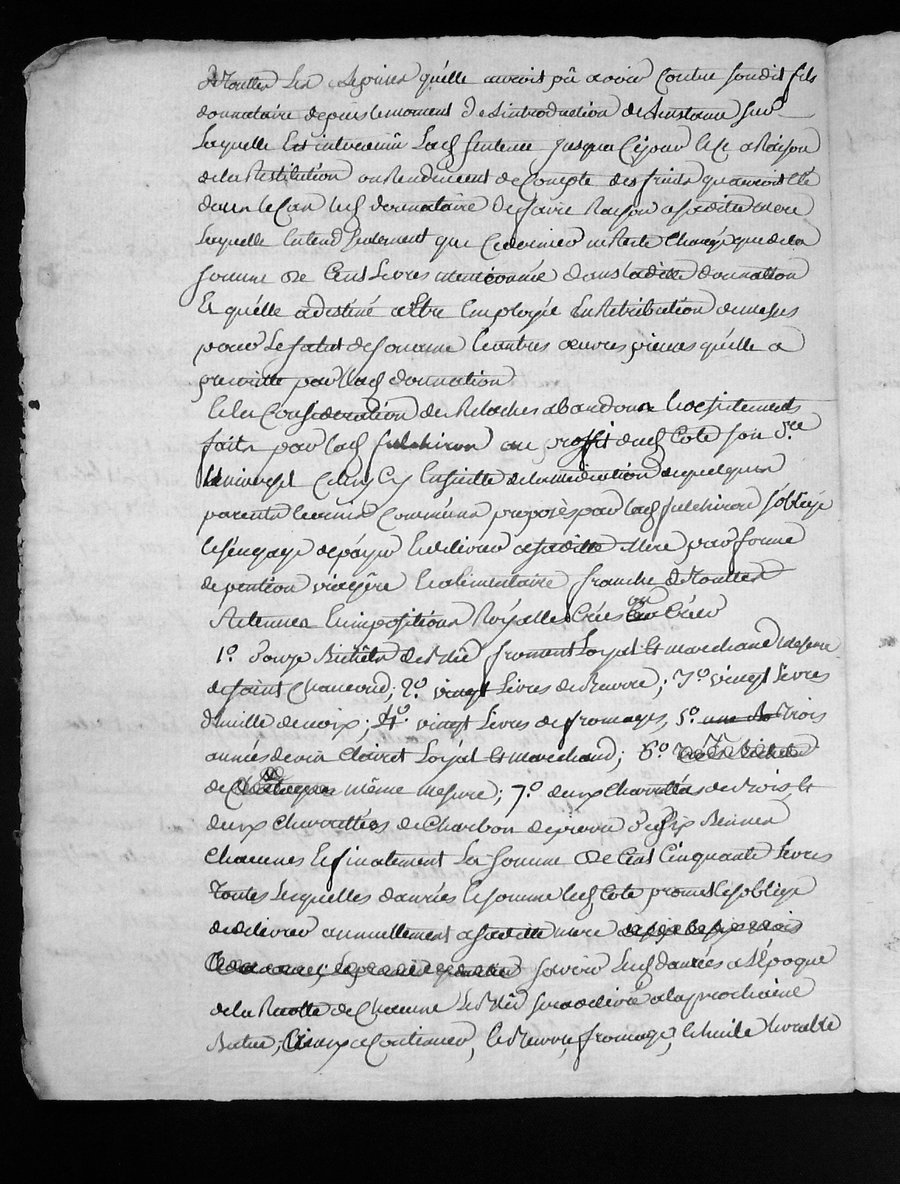 de toutter les reprises qu'elle auroit pû avoir Contre sondit fils
donnataire depuis le moment de l'introduction de linstance sur
Laquelle Est intervenûe Lad sentence jusques à Cejour Et Ce a Raison
de la Restitution ou Rendement de Compte des fruits qu'auroit Eté
dans le Cas led donnataire de faire Raison a saditte mere
Laquelle Entend seulement que Ce dernier ne Reste Chargé que de la
somme de Cent Livres mentionnée dans laditte donnation
Et qu'elle a destiné a Etre Employée En Retribution de messes
pour Le salut de son ame Et autres œuvres pieuses qu'elle a
prescritte par lad donnation
Et En Consideration des Relaches abandons Et desistements
faits par lad fulchiron au proffit dud Cote son fils
Ensuitte de la médiation de quelques
parents Et amis Communs proposés par lad fulchiron s'oblige
Et s'engage de payer Et delivrer a saditte Mere par forme
de pention viagère Et alimentaire franche de Touttes
Retenues Et impositions Royalles Créés ou a Créer
1.º Douze Bichets de Bled froment Loyal Et marchand mesure
de saint Chamond; 2.º vingt Livres de Beurre; 3.º vingt Livres
d'huille de noix; 4.º vingt Livres de fromages, 5.º trois
années de vin Clairet Loyal Et marchand; 6.º Trois Bichets
de même mesure; 7.º deux Charrettées de Bois, Et
deux Charrettées de Charbon de pierre de six Bennes
Chacunes Et finalement La somme de Cent Cinquante Livres
Toutes Lesquelles danrées Et somme led Cote promet Et s'oblige
de delivrer annuellement a saditte mere
savoir Lesd danrées a L'Epoque
de la Recolte de Chacune Le Bled sera delivré a la prochaine
Et ainsy a Continuer, le Beurre, fromage, Et huile livrable